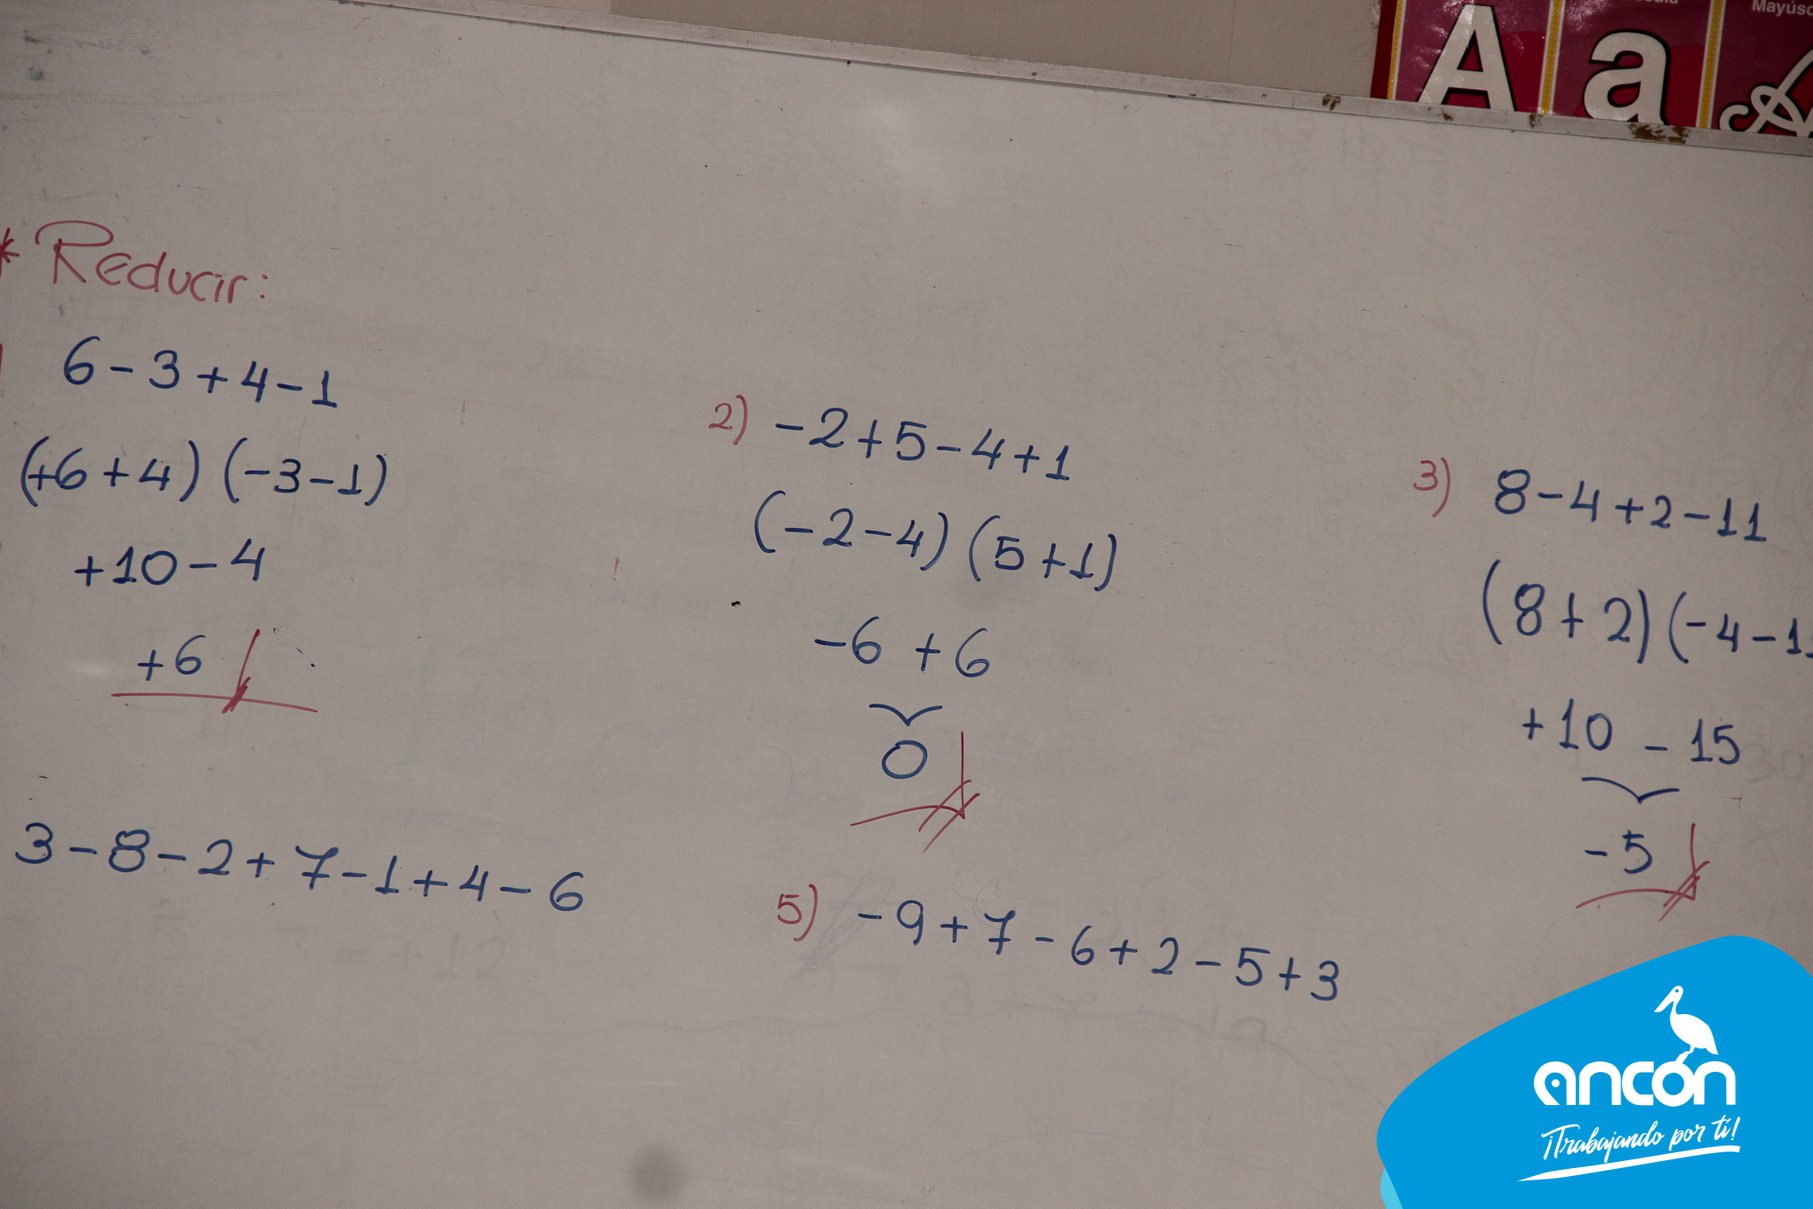 Mayúsc
A a
* Reducir:
6-3+4-1
(+6+4) (-3-1)
+10-4
+6
2) -2+5-4+1
(-2-4) (5+1)
-6 +6
0
3) 8-4+2-11
(8+2) (-4-11
+10 -15
-5
3-8-2+7-1+4-6
5) -9+7-6+2-5+3
ancón
¡Trabajando por ti!